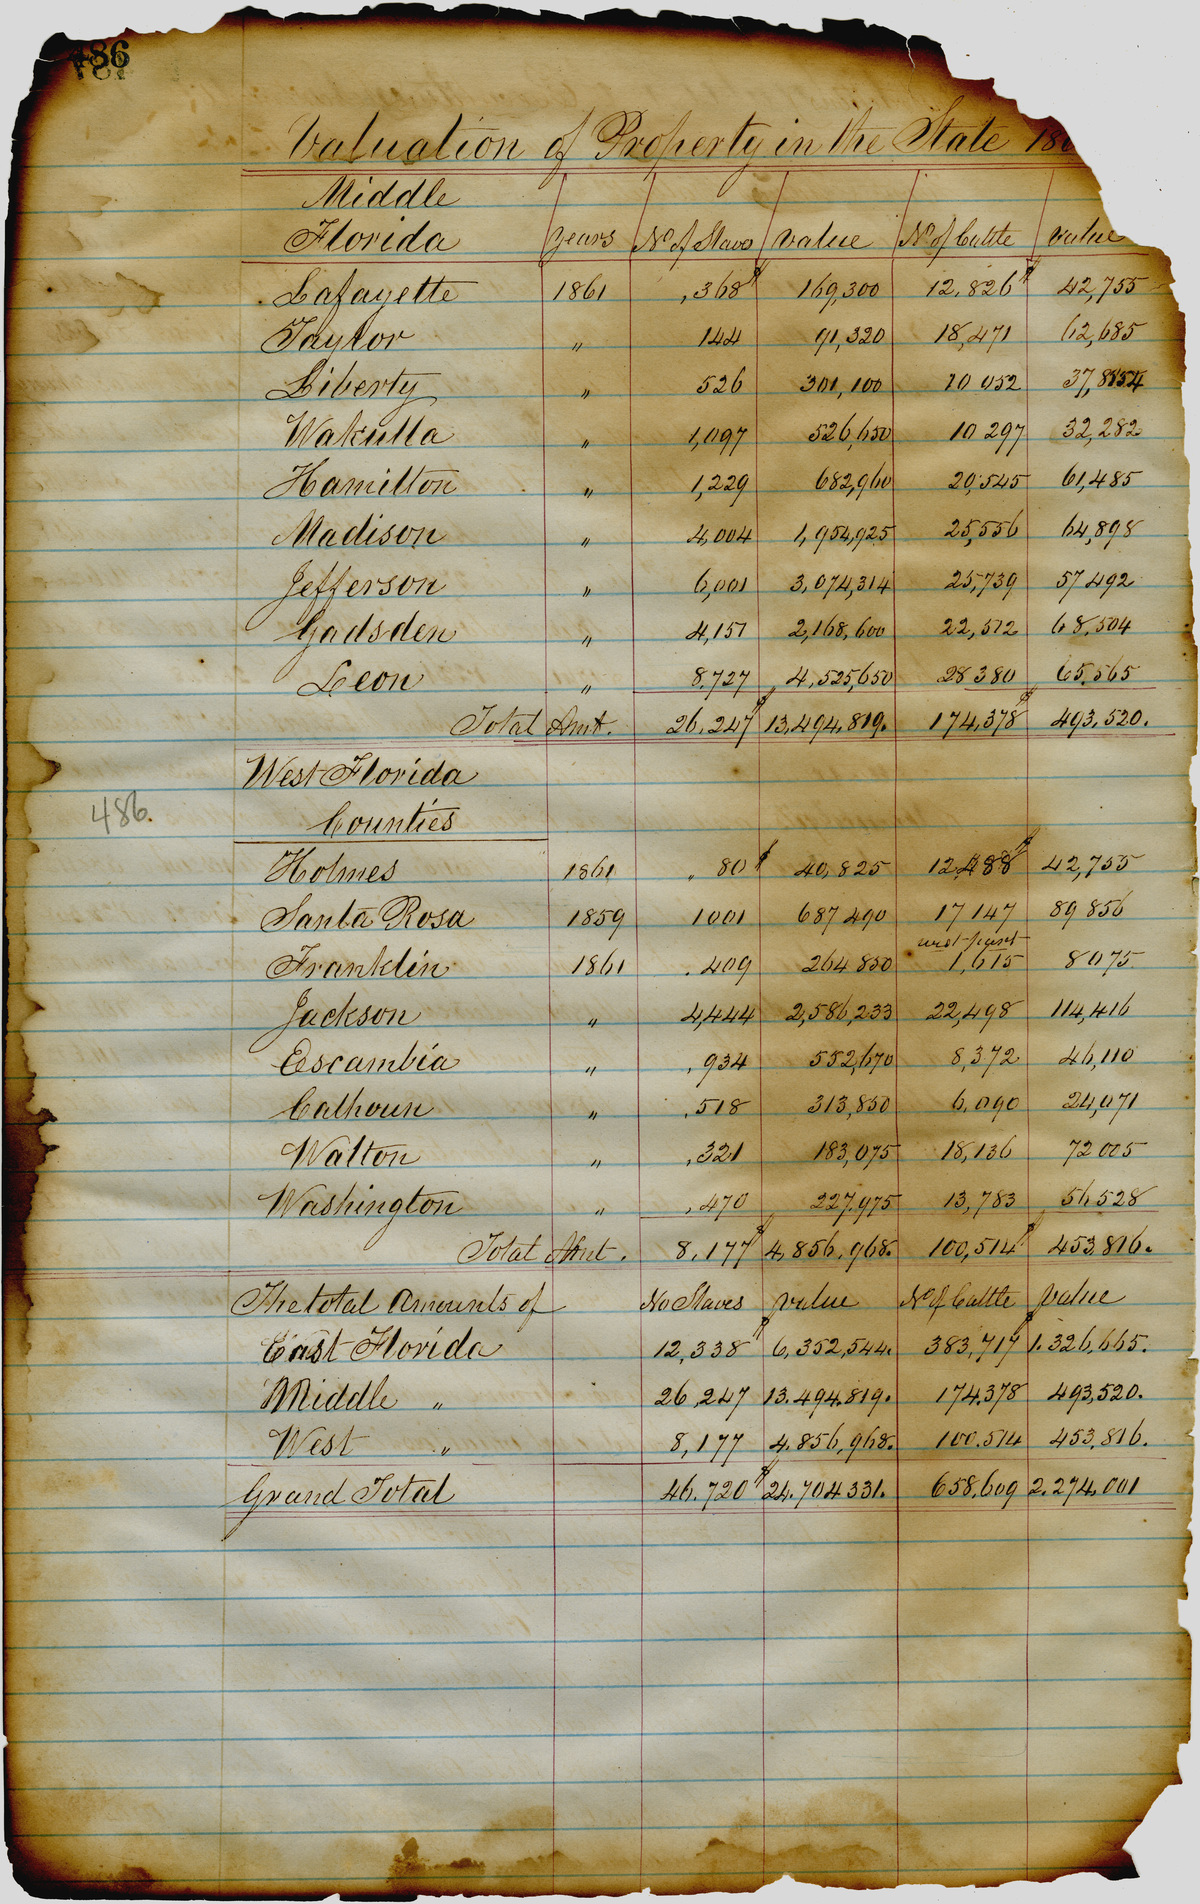 486
Valuation of Property in the State 18
Middle
Florida years No of Slaves value No of Cattle value
Lafayette 1861 ,368 $ 169,300 12,826 $ 42,755
Taylor " 144 91,320 18,471 62,685
Liberty " 526 301,100 10 052
Wakulla " 1,097 526,650 10 297 32,282
Hamilton " 1,229 682,960 20,545 61,485
Madison " 4,004 1,954,925 25,556 64,898
Jefferson " 6,001 3,074,314 25,739 57 492
Gadsden " 4,151 2,168,600 22,512 68,504
Leon " 8,727 4,525,650 28 380 65,565
Total Amt. 26,247 $ 13,494,819. 174,378 $ 493,520.
West Florida
486.
Counties
Holmes 1861 80 $ 40,825 12,488 $ 42,755
Santa Rosa 1859 1001 687 490 17 147 89 856
west part
Franklin 1861 .409 264 850 1,615 8075
Jackson " 4,444 2,586,233 22,498 114,416
Escambia " ,934 552,670 8,372 46,110
Calhoun " ,518 313,850 6,090 24,071
Walton " ,321 183,075 18,136 72 005
Washington " ,470 227,975 13,783 56,528
Total Amt. 8,177 $ 4,856,968. 100,514 $ 453,816.
The total Amounts of No Slaves value No of Cattle value
East Florida 12,338 $ 6,352,544. 383,717 $ 1.326,665.
Middle " 26,247 13.494.819. 174.378 493,520.
West " 8,177 4.856,968. 100.514 453,816.
Grand Total 46.720 $ 24.704331. 658,609 2.274,001